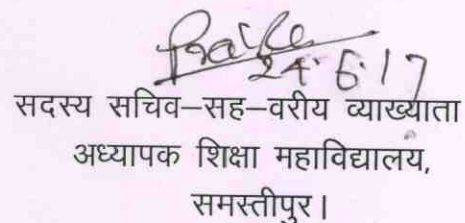 24.6.17
सदस्य सचिव–सह–वरीय व्याख्याता
अध्यापक शिक्षा महाविद्यालय,
समस्तीपुर।